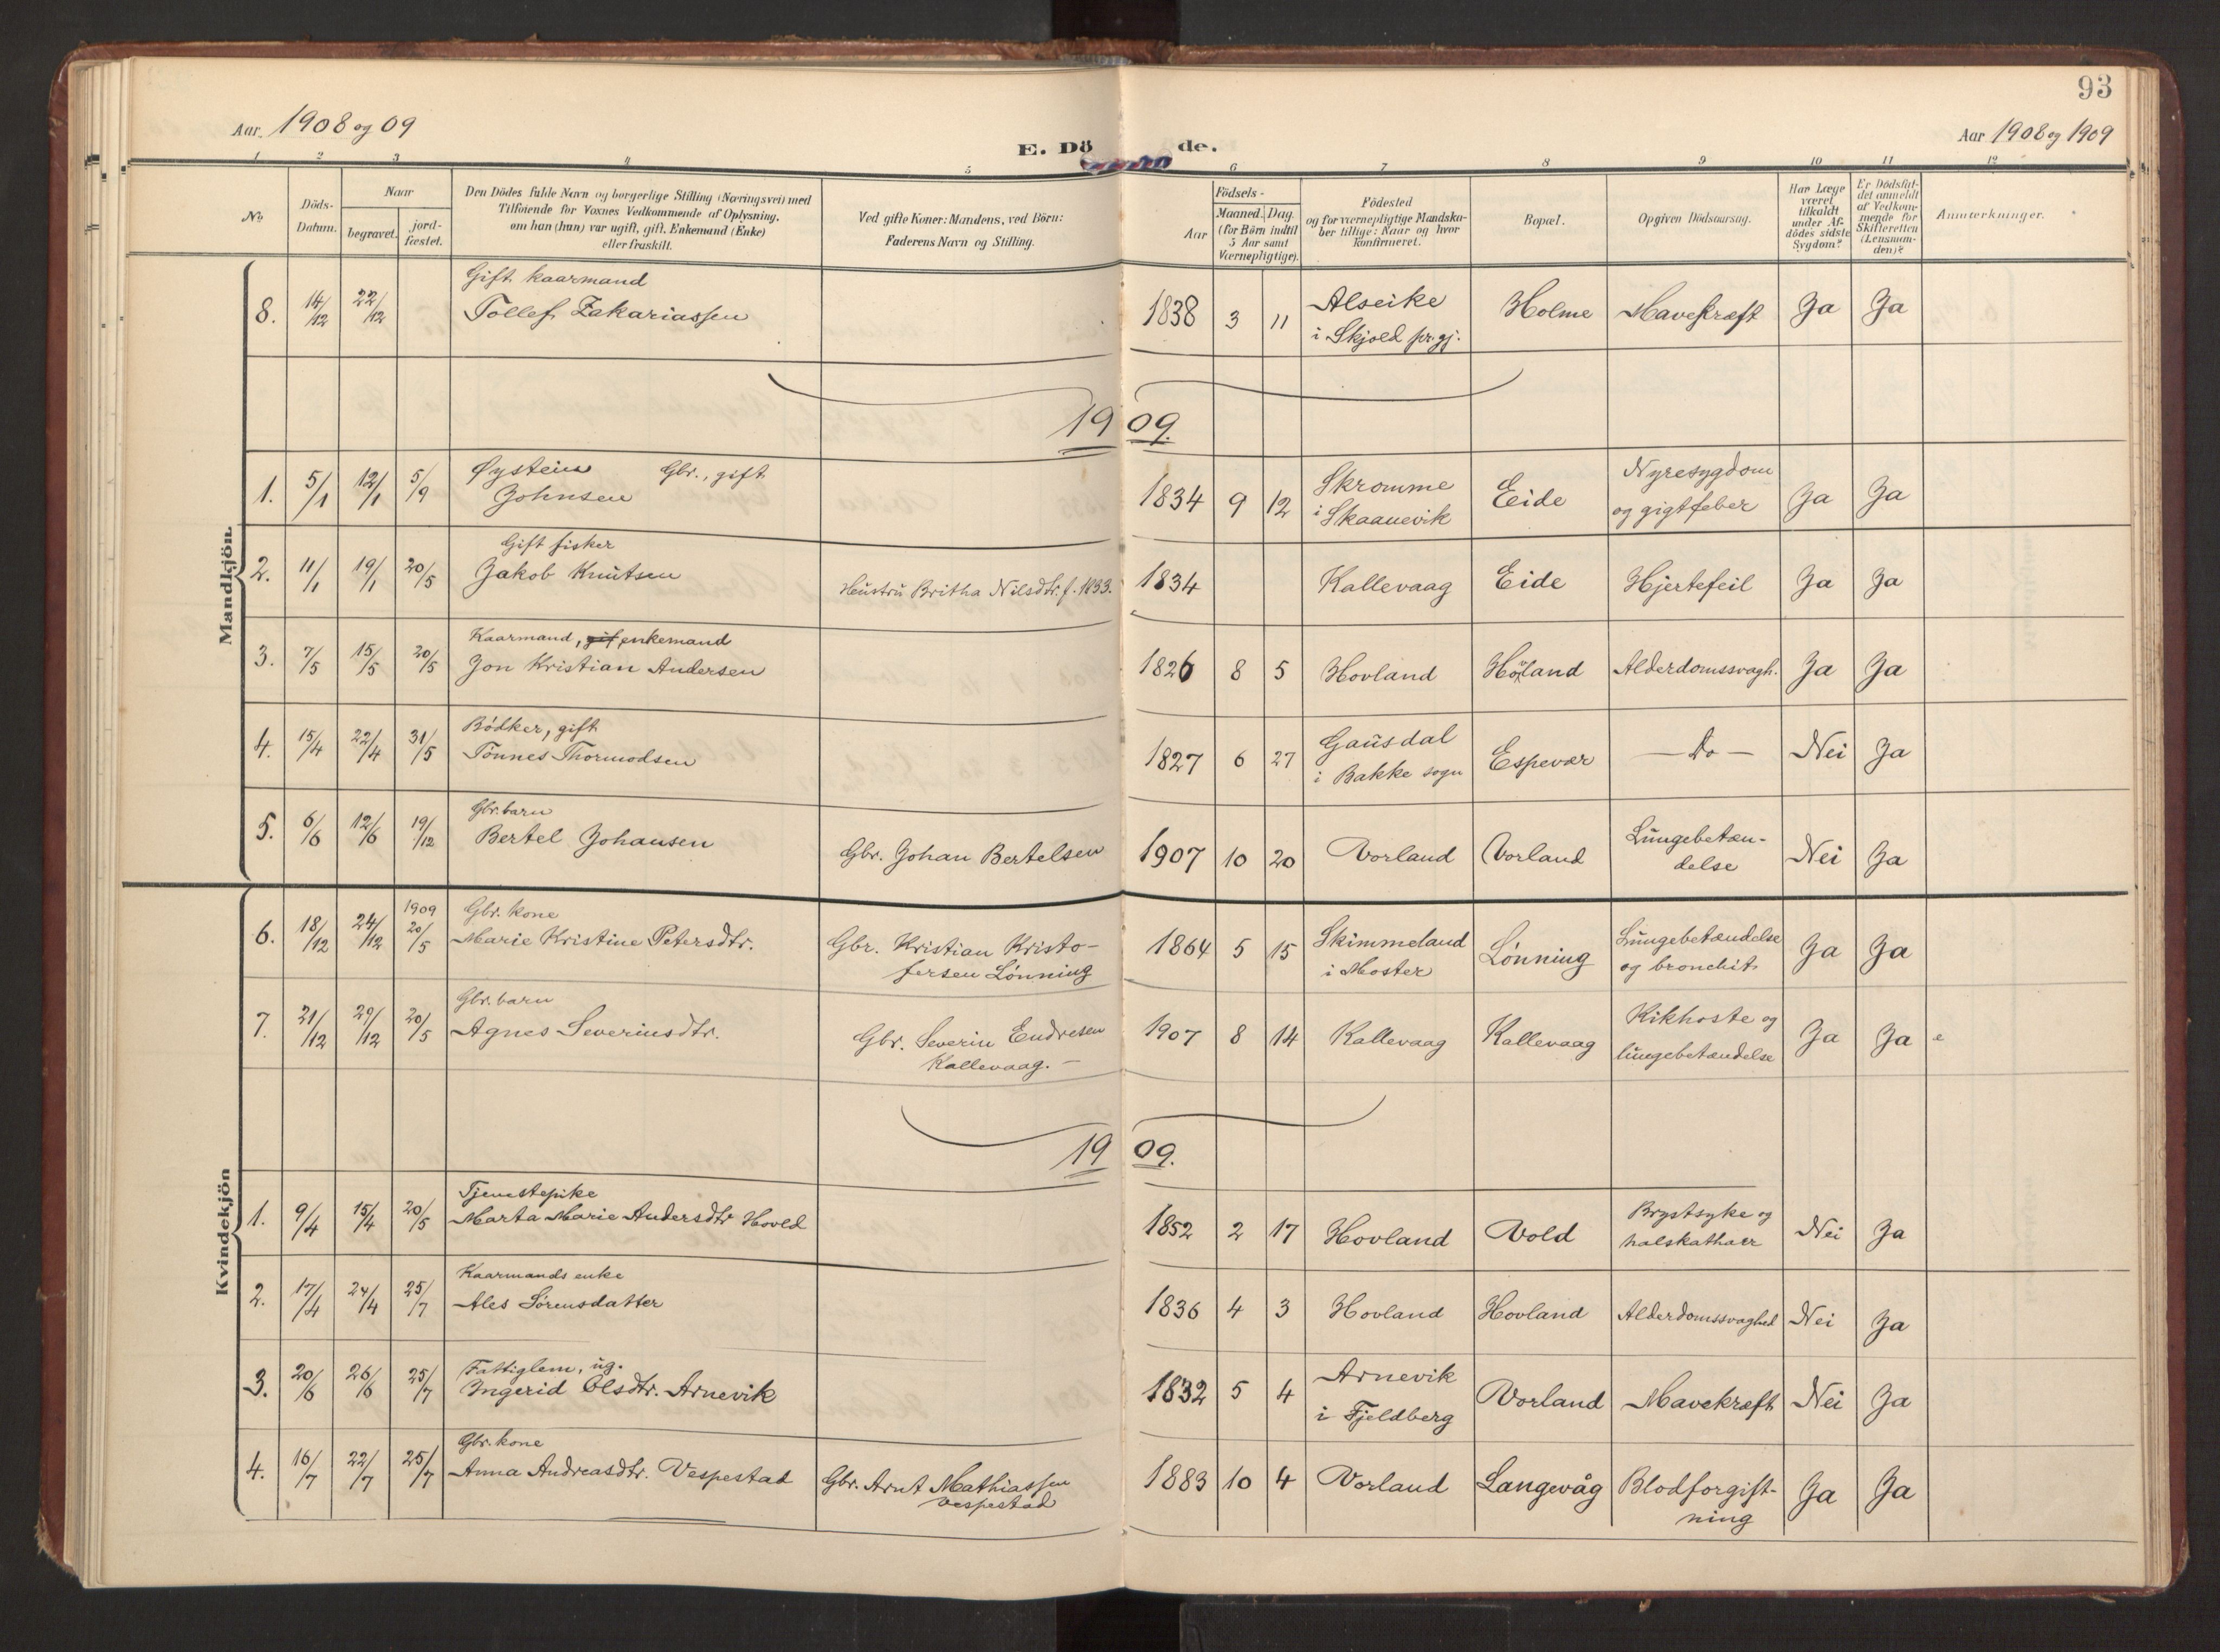 93
Aar. 1908 og 09
E. Dö de.
Aar 1908 og 1909
1 2 3 4 5 6 7 8 9 10 11 12
No
Döds-
Datum.
Naar
begravet.
jord-
fæstet.
Den Dödes fulde Navn og borgerlige Stilling (Næringsvei) med
Tilföiende for Voxnes Vedkommende af Oplysning,
om han (hun) var ugift, gift, Enkemand (Enke)
eller fraskilt.
Ved gifte Koner: Mandens, ved Börn:
Faderens Navn og Stilling.
Födsels-
Aar
Maaned. Dag.
(for Börn indtil
5 Aar samt
Værnepligtige).
Födested
og for værnepligtige Mandska-
ber tillige: Naar og hvor
konfirmeret.
Bopæl.
Opgiven Dödsaarsag.
Har Læge
været
tilkaldt
under Af-
dödes sidste
Sygdom?
Er Dödsfal-
det anmeldt
af Vedkom-
mende for
Skifteretten
(Lensman-
den)?
Anmærkninger.
Mandkjön.
8. 14/12 22/12 Gift kaarmand
Tollef Zakariassen 1838 3 11 Alseike
i Skjold pr.gj. Holme Mavekræft Ja Ja
1909.
1. 5/1 12/1 5/9 Øystein Gbr., gift
Johnsen 1834 9 12 Skromme
i Skaanevik Eide Nyresygdom
og gigtfeber Ja Ja
2. 11/1 19/1 20/5 Gift fisker
Jakob Knutsen Hustru Britha Nilsdtr. f. 1833. 1834 Kallevaag Eide Hjertefeil Ja Ja
3. 7/5 15/5 20/5 Kaarmand, gif, enkemand
Jon Kristian Andersen 1826 8 5 Hovland Hovland Alderdomssvagh. Ja Ja
4. 15/4 22/4 31/5 Bödker, gift
Tönnes Thormodsen 1827 6 27 Gausdal
i Bakke sogn Espevær — Do — Nei Ja
5. 6/6 12/6 19/12 Gbr. barn
Bertel Johansen Gbr. Johan Bertelsen 1907 10 20 Vorland Vorland Lungebetæn-
delse Nei Ja
Kvindekjön
6. 18/12 24/12 1909 20/5 Gbr. kone
Marie Kristine Petersdtr. Gbr. Kristian Kristo-
fersen Lönning 1864 5 15 Skimmeland
i Moster Lönning Lungebetændelse
og bronchit Ja Ja
7. 21/12 29/12 20/5 Gbr. barn
Agnes Severinsdtr. Gbr. Severin Endresen
Kallevaag. — 1907 8 14 Kallevaag Kallevaag Kikhoste og
lungebetændelse Ja Ja
1909.
1. 9/4 15/4 20/5 Tjenestepike
Marta Marie Andersdtr Hovld 1852 2 17 Hovland Vold Brystsyke og
halskatharr Nei Ja
2. 17/4 24/4 25/7 Kaarmands enke
Ales Sörensdatter 1836 4 3 Hovland Hovland Alderdomssvaghed Nei Ja
3. 20/6 26/6 25/7 Fattiglem, ug.
Ingerid Olsdtr. Arnevik 1832 5 4 Arnevik
i Fjeldberg Vorland Mavekræft Nei Ja
4. 16/7 22/7 25/7 Gbr. kone
Anna Andreasdtr. Vespestad Gbr. Arnt Mathiassen
Vespestad 1883 10 4 Vorland Langevåg Blodforgift-
ning Ja Ja